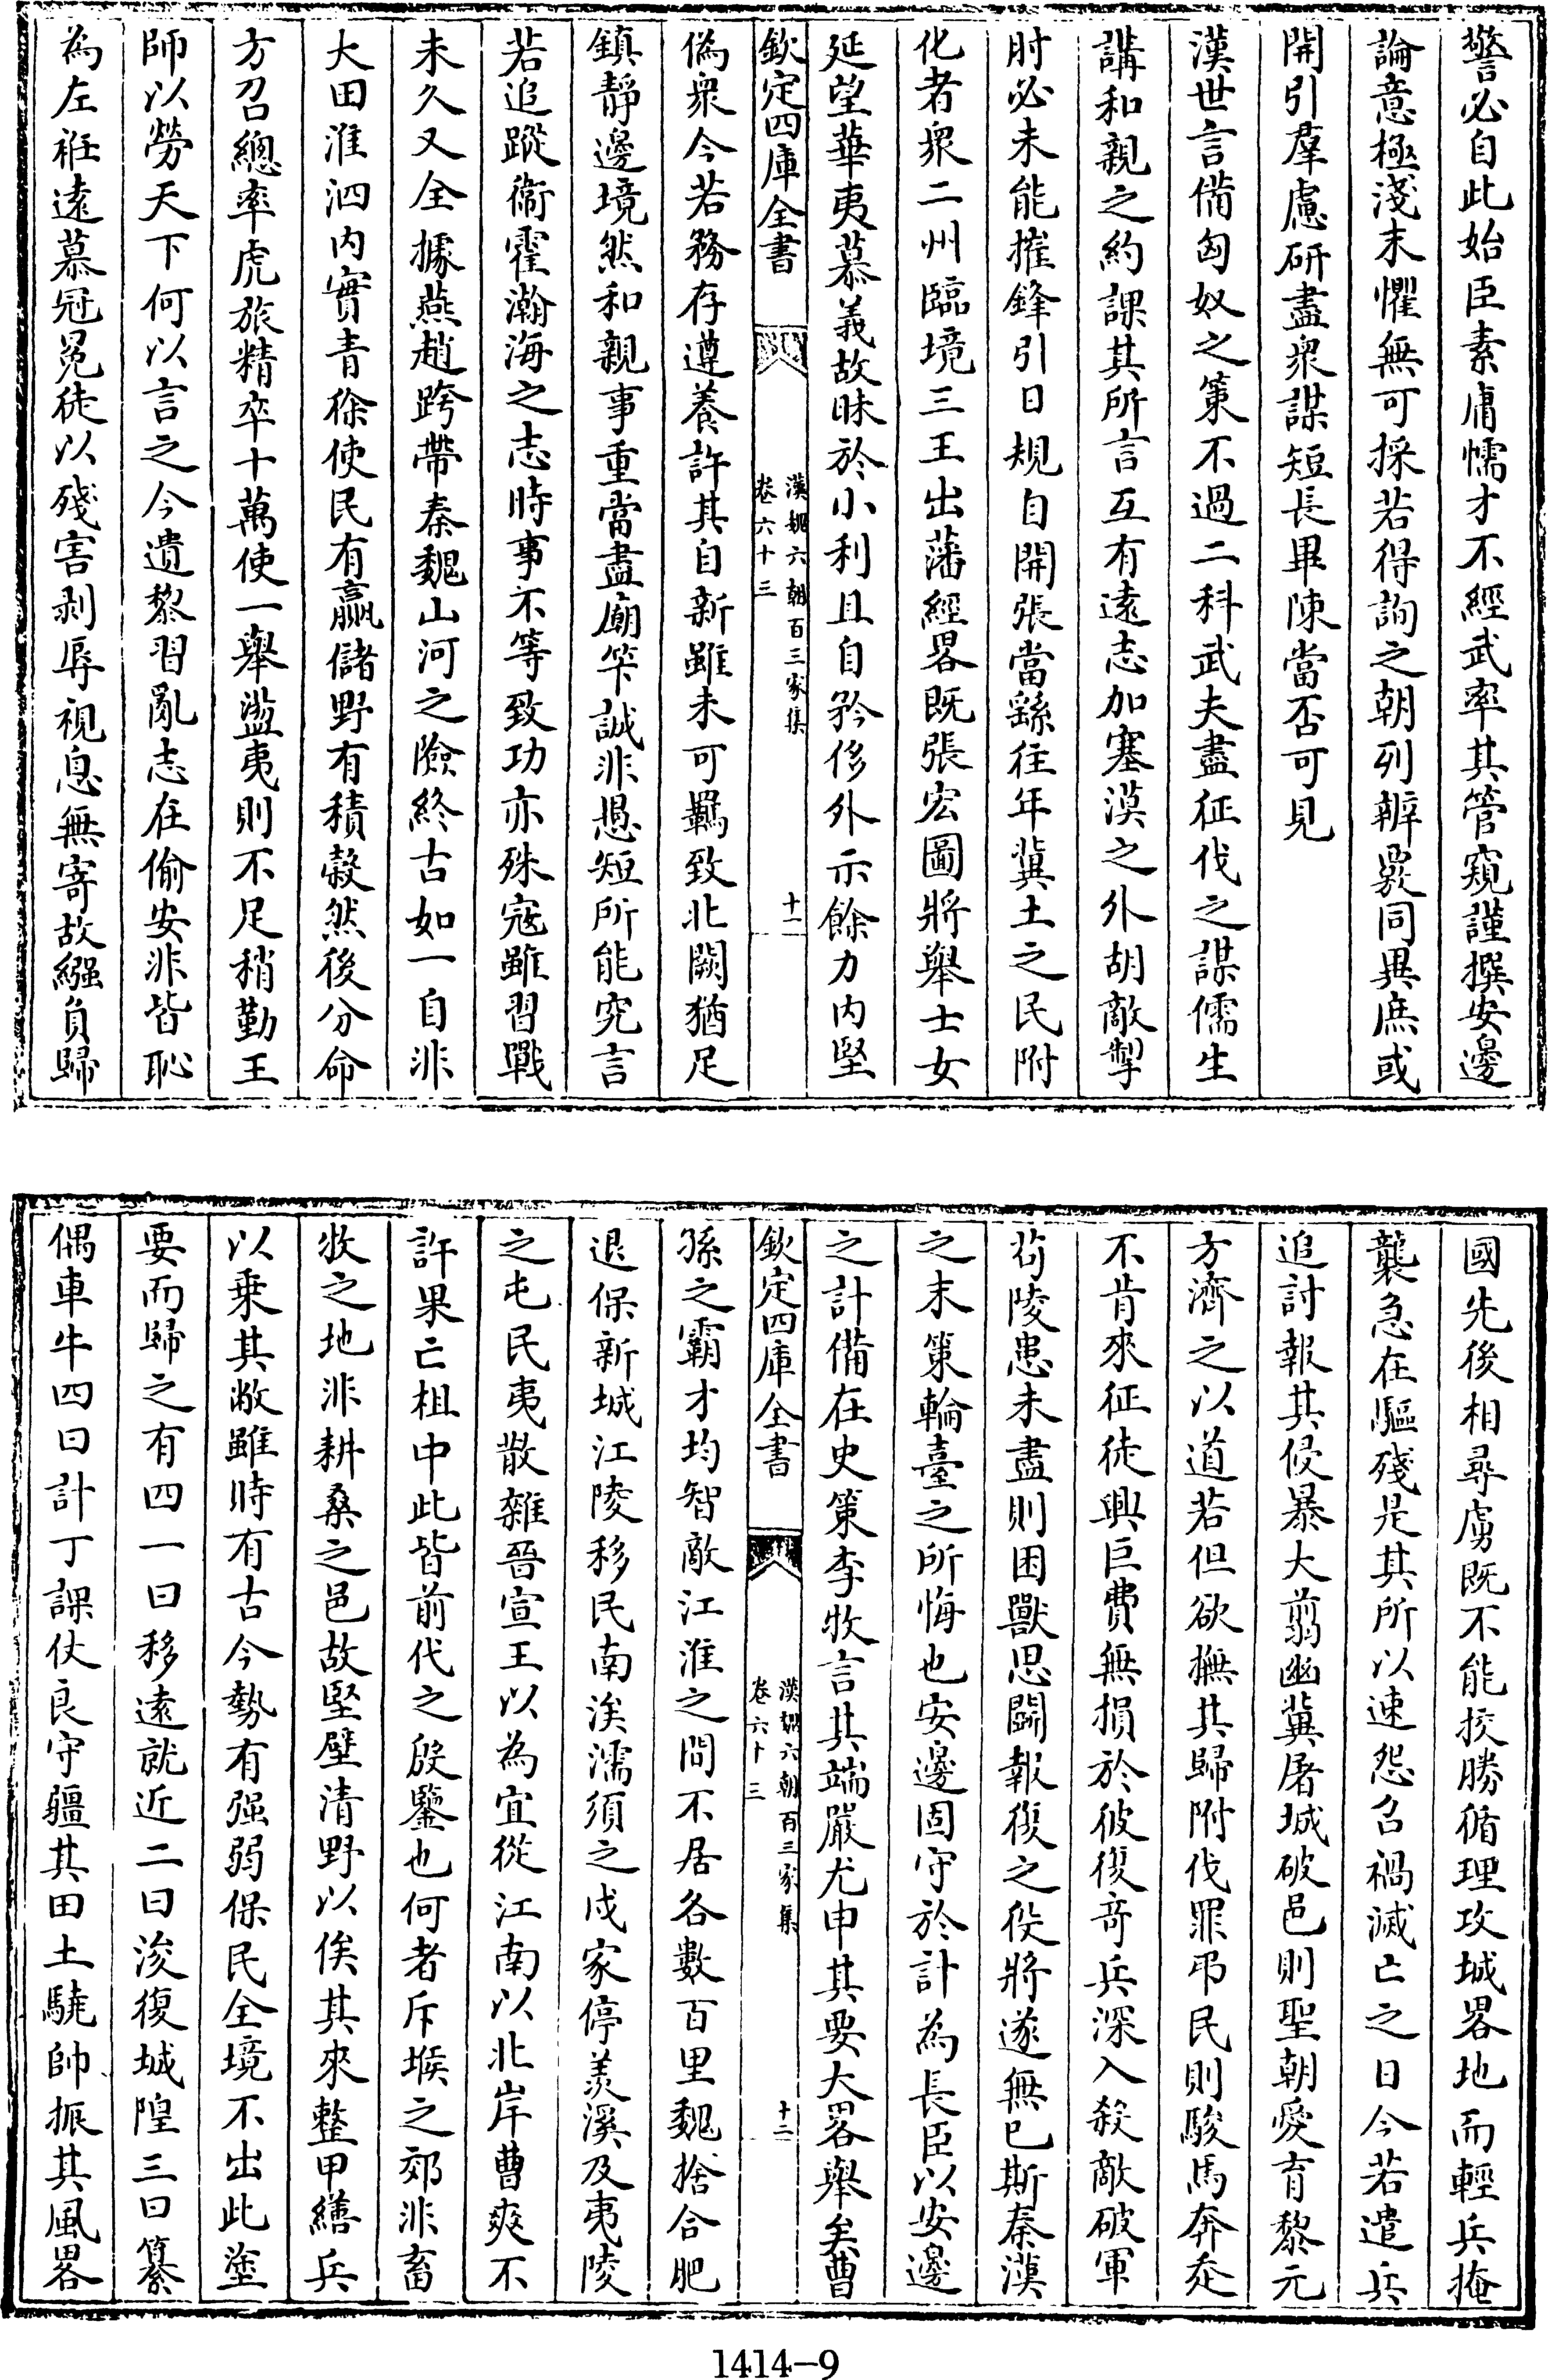 警必自此始臣素庸懦才不經武率其管窺謹撰安邊
論意極淺末懼無可採若得詢之朝列辨覈同異庶或
開引羣慮研盡衆謀短長畢陳當否可見
漢世言備匈奴之策不過二科武夫盡征伐之謀儒生
講和親之約課其所言互有遠志加塞漠之外胡敵掣
肘必未能摧鋒引日規自開張當繇往年冀土之民附
化者衆二州臨境三王出藩經畧既張宏圖將舉士女
延望華夷慕義故昧於小利且自矜侈外示餘力内堅
欽定四庫全書
漢魏六朝百三家集
卷六十三
十一
偽衆今若務存遵養許其自新雖未可羈致北闕猶足
鎮靜邊境然和親事重當盡廟筭誠非愚短所能究言
若追蹤衞霍瀚海之志時事不等致功亦殊寇雖習戰
未久又全據燕趙跨帶秦魏山河之險終古如一自非
大田淮泗内實青徐使民有贏儲野有積穀然後分命
方召總率虎旅精卒十萬使一舉盪夷則不足稍勤王
師以勞天下何以言之今遺黎習亂志在偷安非皆恥
為左袵遠慕冠冕徒以殘害剥辱視息無寄故繈負歸
國先後相尋虜既不能挍勝循理攻城畧地而輕兵掩
襲急在驅殘是其所以速怨召禍滅亡之日今若遣兵
追討報其侵暴大翦幽冀屠城破邑則聖朝愛育黎元
方濟之以道若但欲撫其歸附伐罪弔民則駿馬奔走
不肯來征徒興巨費無損於彼復竒兵深入殺敵破軍
苟陵患未盡則困獸思鬭報復之役將遂無已斯秦漢
之末策輪臺之所悔也安邊固守於計為長臣以安邊
之計備在史策李牧言其端嚴尤申其要大畧舉矣曹
欽定四庫全書
漢魏六朝百三家集
卷六十三
十二
孫之霸才均智敵江淮之間不居各數百里魏捨合肥
退保新城江陵移民南涘濡須之戍家停羨溪及夷陵
之屯民夷散雜晉宣王以為宜從江南以北岸曹爽不
許果亡柤中此皆前代之殷鑒也何者斥堠之郊非畜
牧之地非耕桑之邑故堅壁清野以俟其來整甲繕兵
以乗其敝雖時有古今勢有强弱保民全境不出此塗
要而歸之有四一曰移遠就近二曰浚復城隍三曰纂
偶車牛四曰計丁課仗良守疆其田土驍帥振其風畧
1414-9